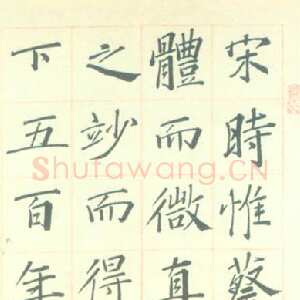 宋時惟蔡
體而微真
之妙而得
下五百年
Shufawang.CN